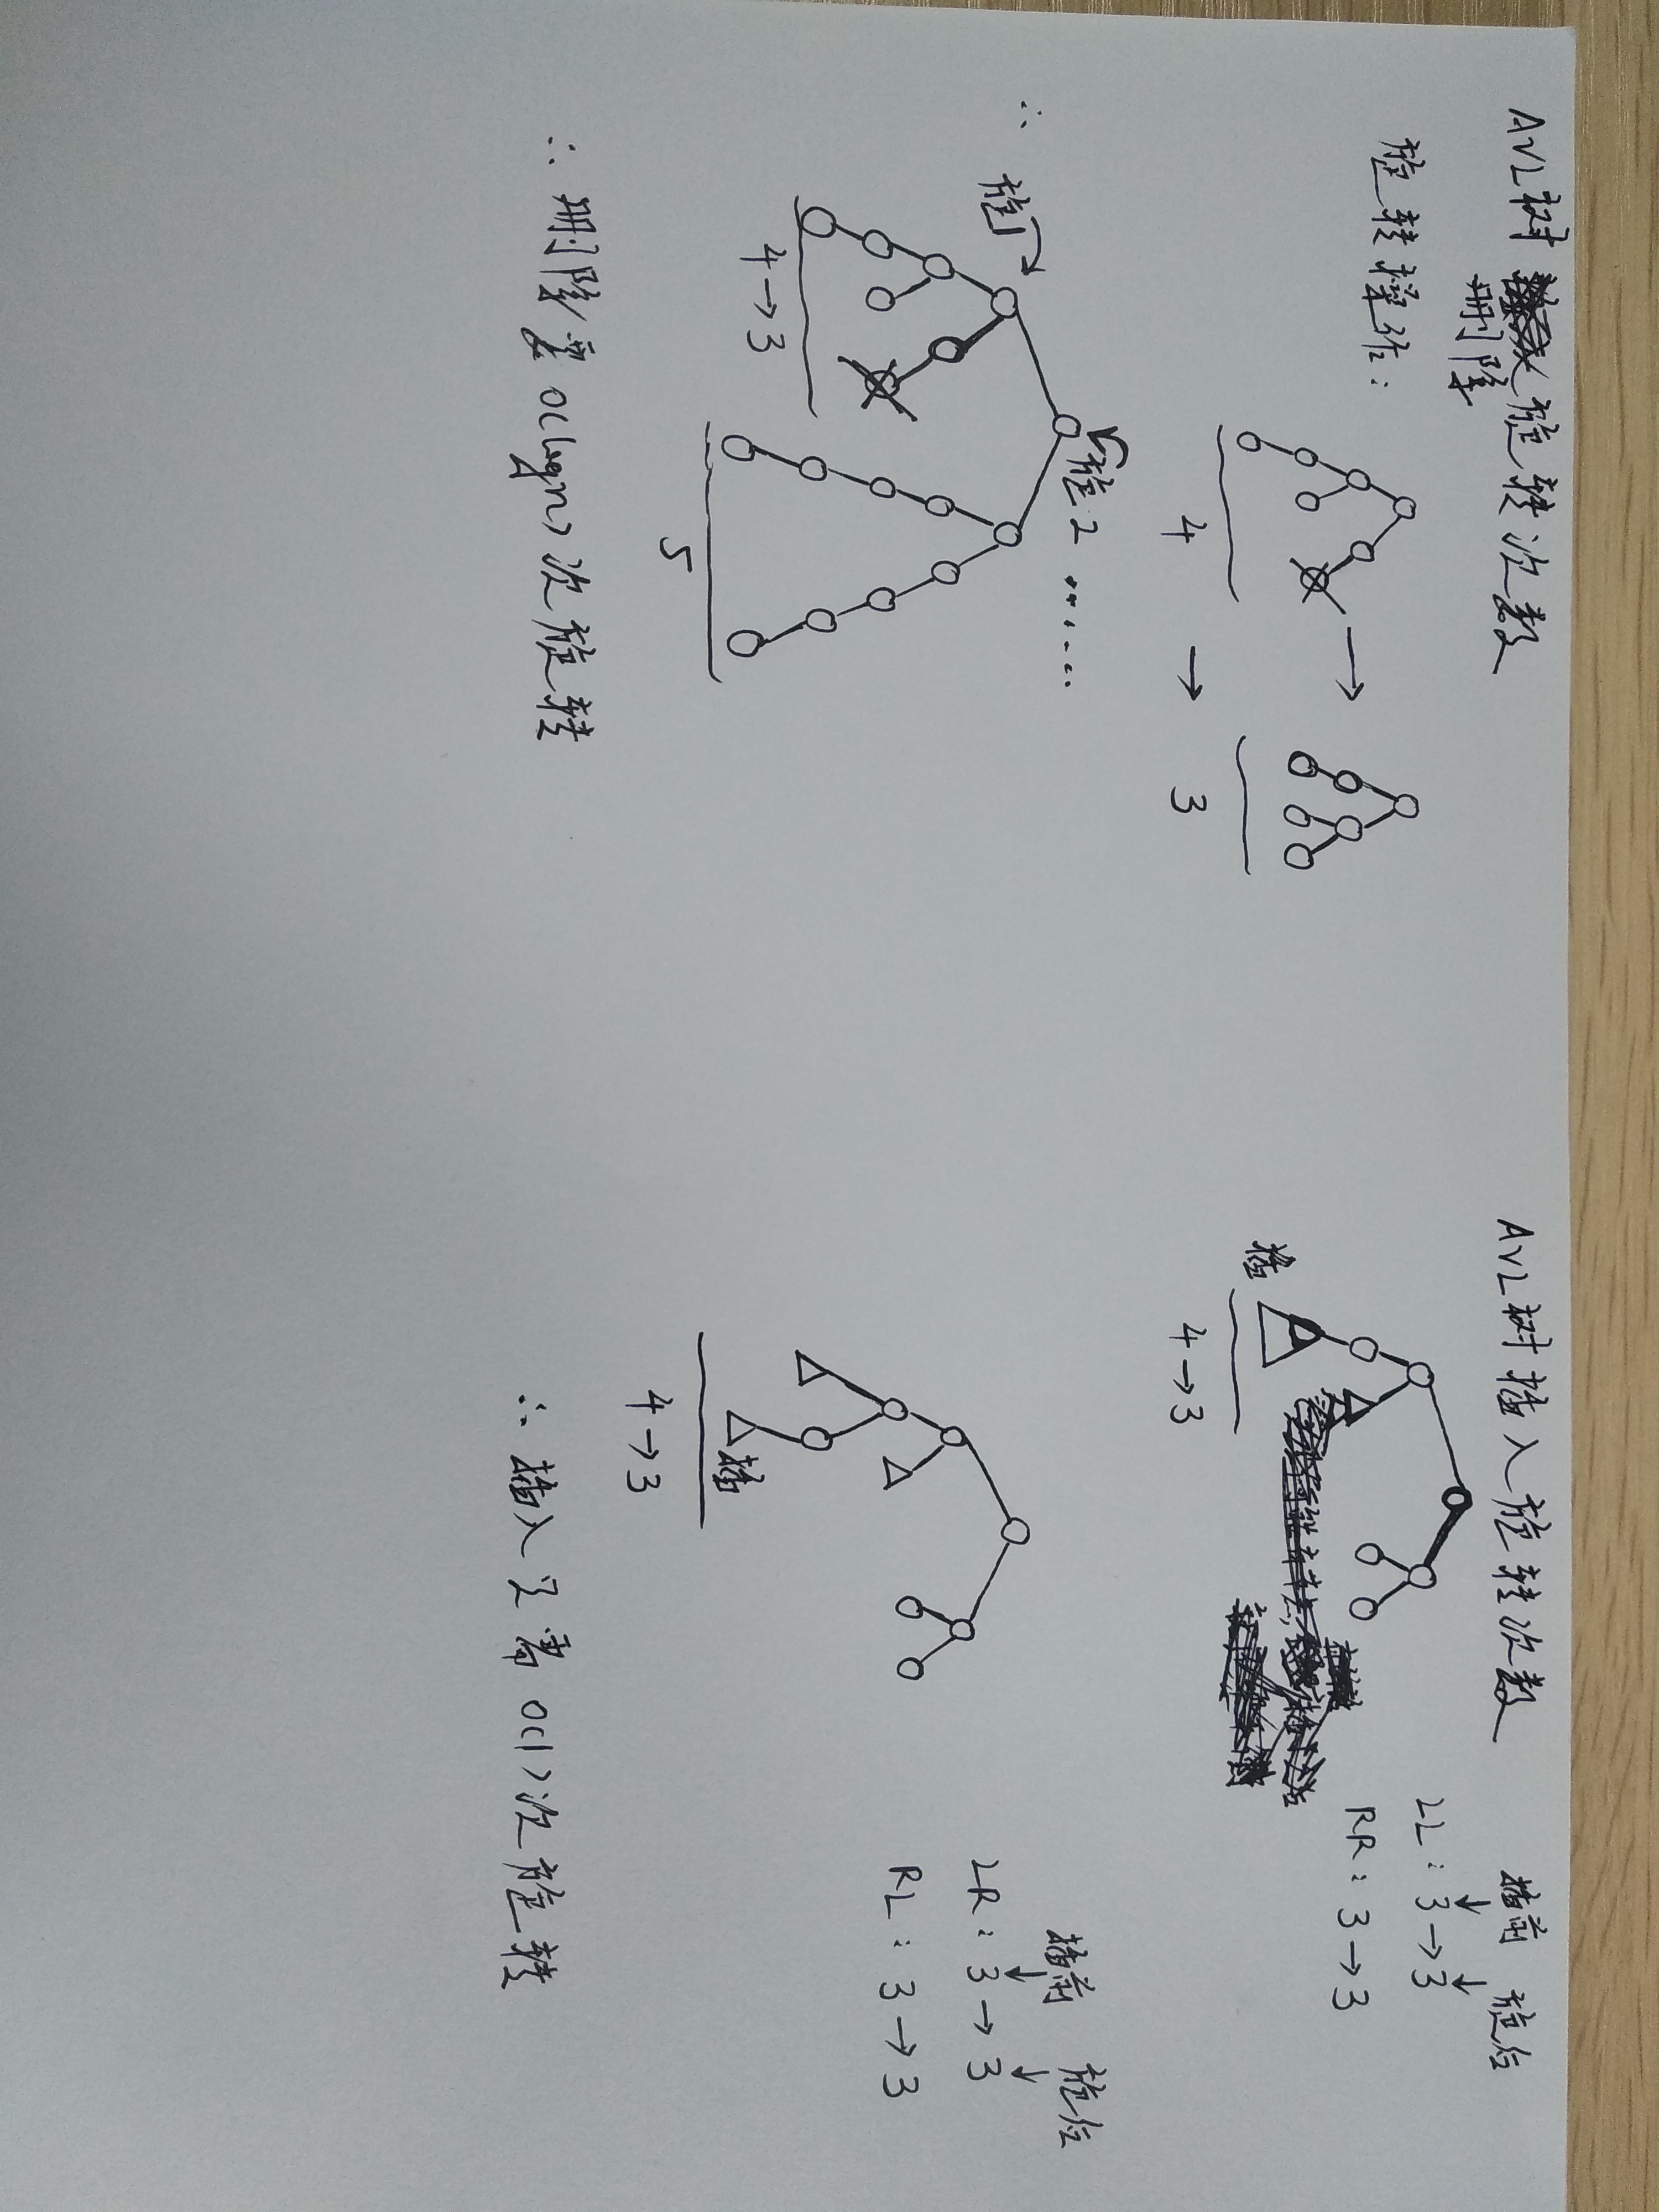 AVL树删除旋转次数
旋转操作:
4 → 3
∴
旋1
旋2 ......
4→3
5
∴ 删除要O(logn)次旋转
AVL树插入旋转次数
插
4→3
插前 旋后
LL: 3→3
RR: 3→3
插
4→3
插前 旋后
LR: 3→3
RL: 3→3
∴ 插入只需O(1)次旋转